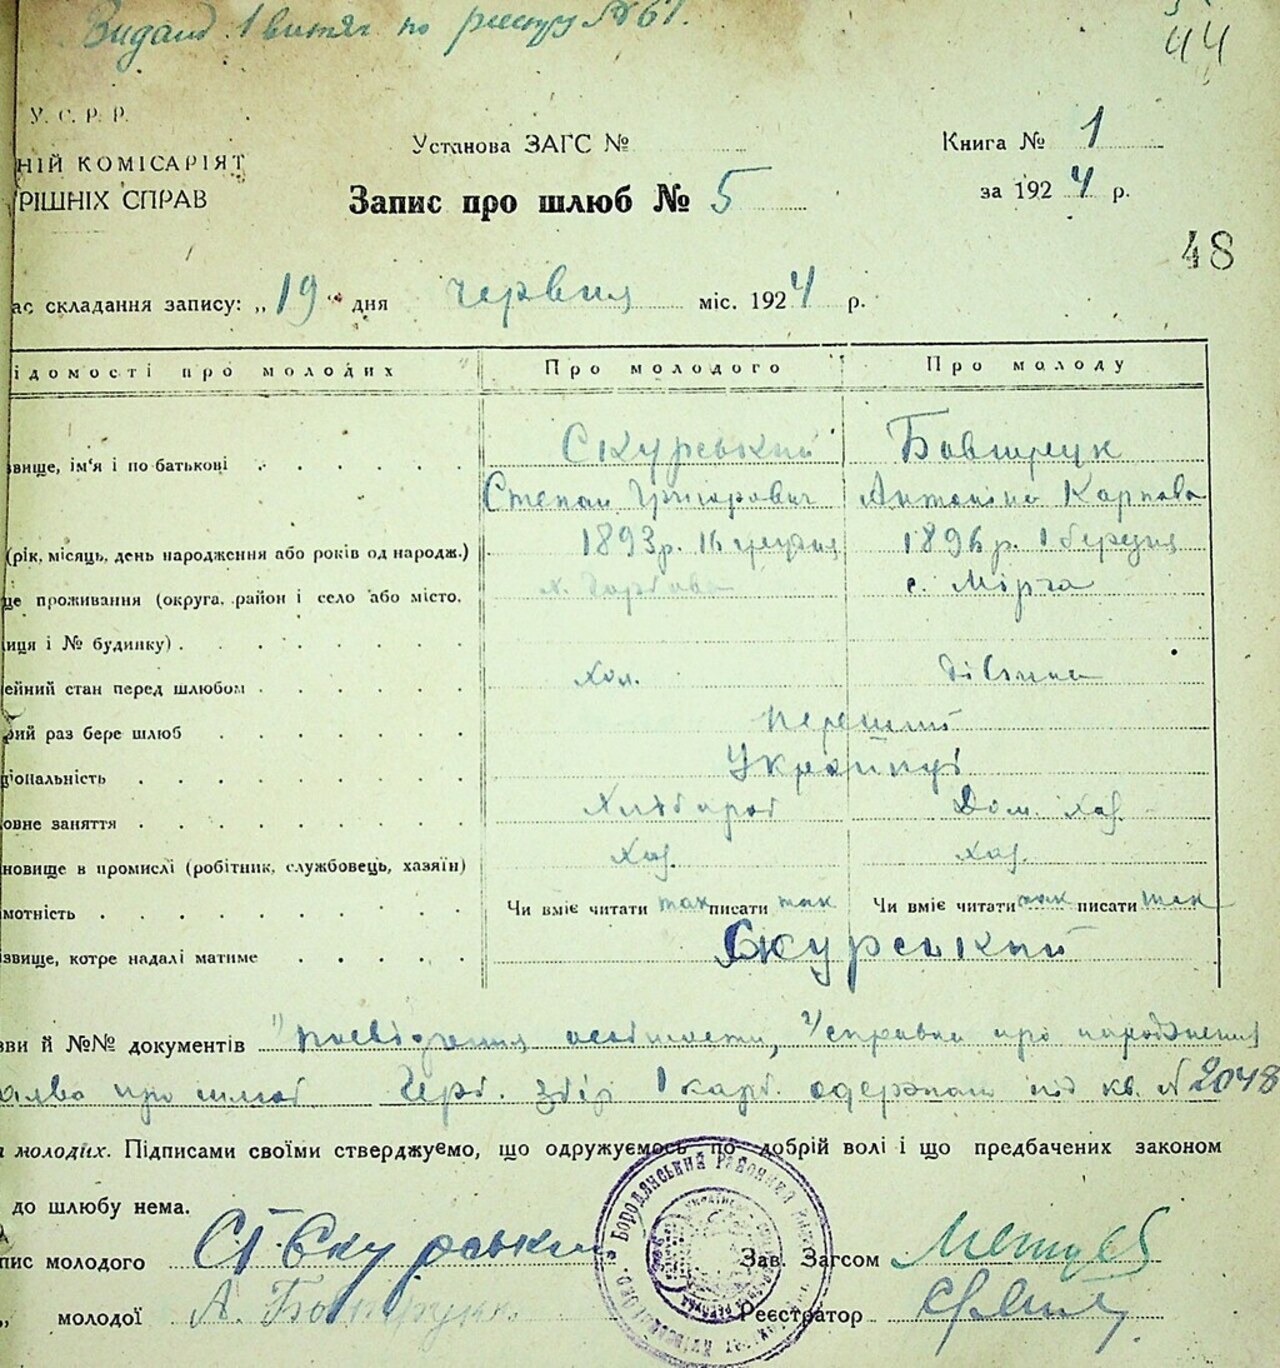 Видано 1 витяг по реєстру № 61.
44
У. С. Р. Р.
НІЙ КОМІСАРІЯТ
РІШНІХ СПРАВ
Установа ЗАГС №
Книга № 1
Запис про шлюб № 5
за 1924 р.
48
ас складання запису: „19" дня червня міс. 1924 р.
ідомості про молодих Про молодого Про молоду
звище, ім'я і по батькові Скуревський
Степан Григорович Антоніна Карпова
(рік, місяць, день народження або років од народж.) 1893 р. 16 1896 р. 1 березня
це проживання (округа, район і село або місто, с.
иця і № будинку)
ейний стан перед шлюбом хол. дівчина
рий раз бере шлюб перший
ціональність Українці
овне заняття Хлібороб Дом. хаз.
новище в промислі (робітник, службовець, хазяїн) хаз. хаз.
мотність Чи вміє читати так писати так Чи вміє читати так писати так
ізвище, котре надалі матиме Скурський
зви й №№ документів 1) посвідчення особистости, 2) справка про народження
про шлюб Герб. збір 1 карб. одержано під кв. № 2048
молодих. Підписами своїми стверджуємо, що одружуємось по добрій волі і що предбачених законом
до шлюбу нема.
пис молодого
Зав. Загсом
„ молодої А.
Реєстратор
Бородянський Районний